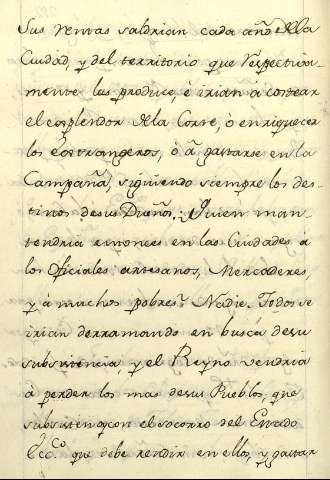 Sus rentas saldrian cada año de la
Ciudad, y del territorio que respectiva-
mente las produce, è irian à costear
el esplendor de la Corte, ò enriquecer
los Estrangeros, ò à gastarse en la
Campaña, siguiendo siempre los des-
tinos de sus Dueños. Quien man-
tendria entonces en las Ciudades à
los oficiales artesanos, Mercaderes,
y à muchos pobres? Nadie. Todos se
irian derramando en busca de su
subsistencia, y el Reyno vendria
à perder los mas de sus Pueblos, que
subsisten con el socorro del Estado
Ecc.º que debe rendir en ellos, y gastar